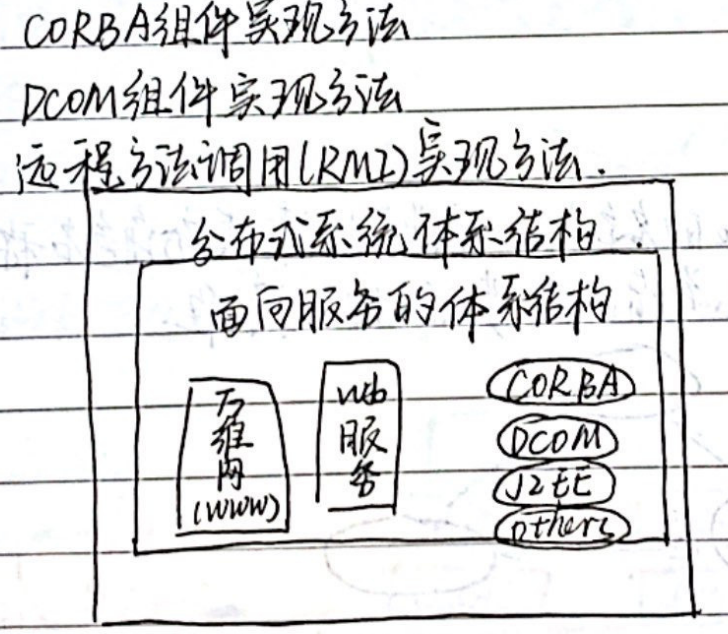 CORBA组件实现方法
DCOM组件实现方法
远程方法调用(RMI)实现方法.
分布式系统体系结构
面向服务的体系结构
万维网(WWW)
web服务
CORBA
DCOM
J2EE
others